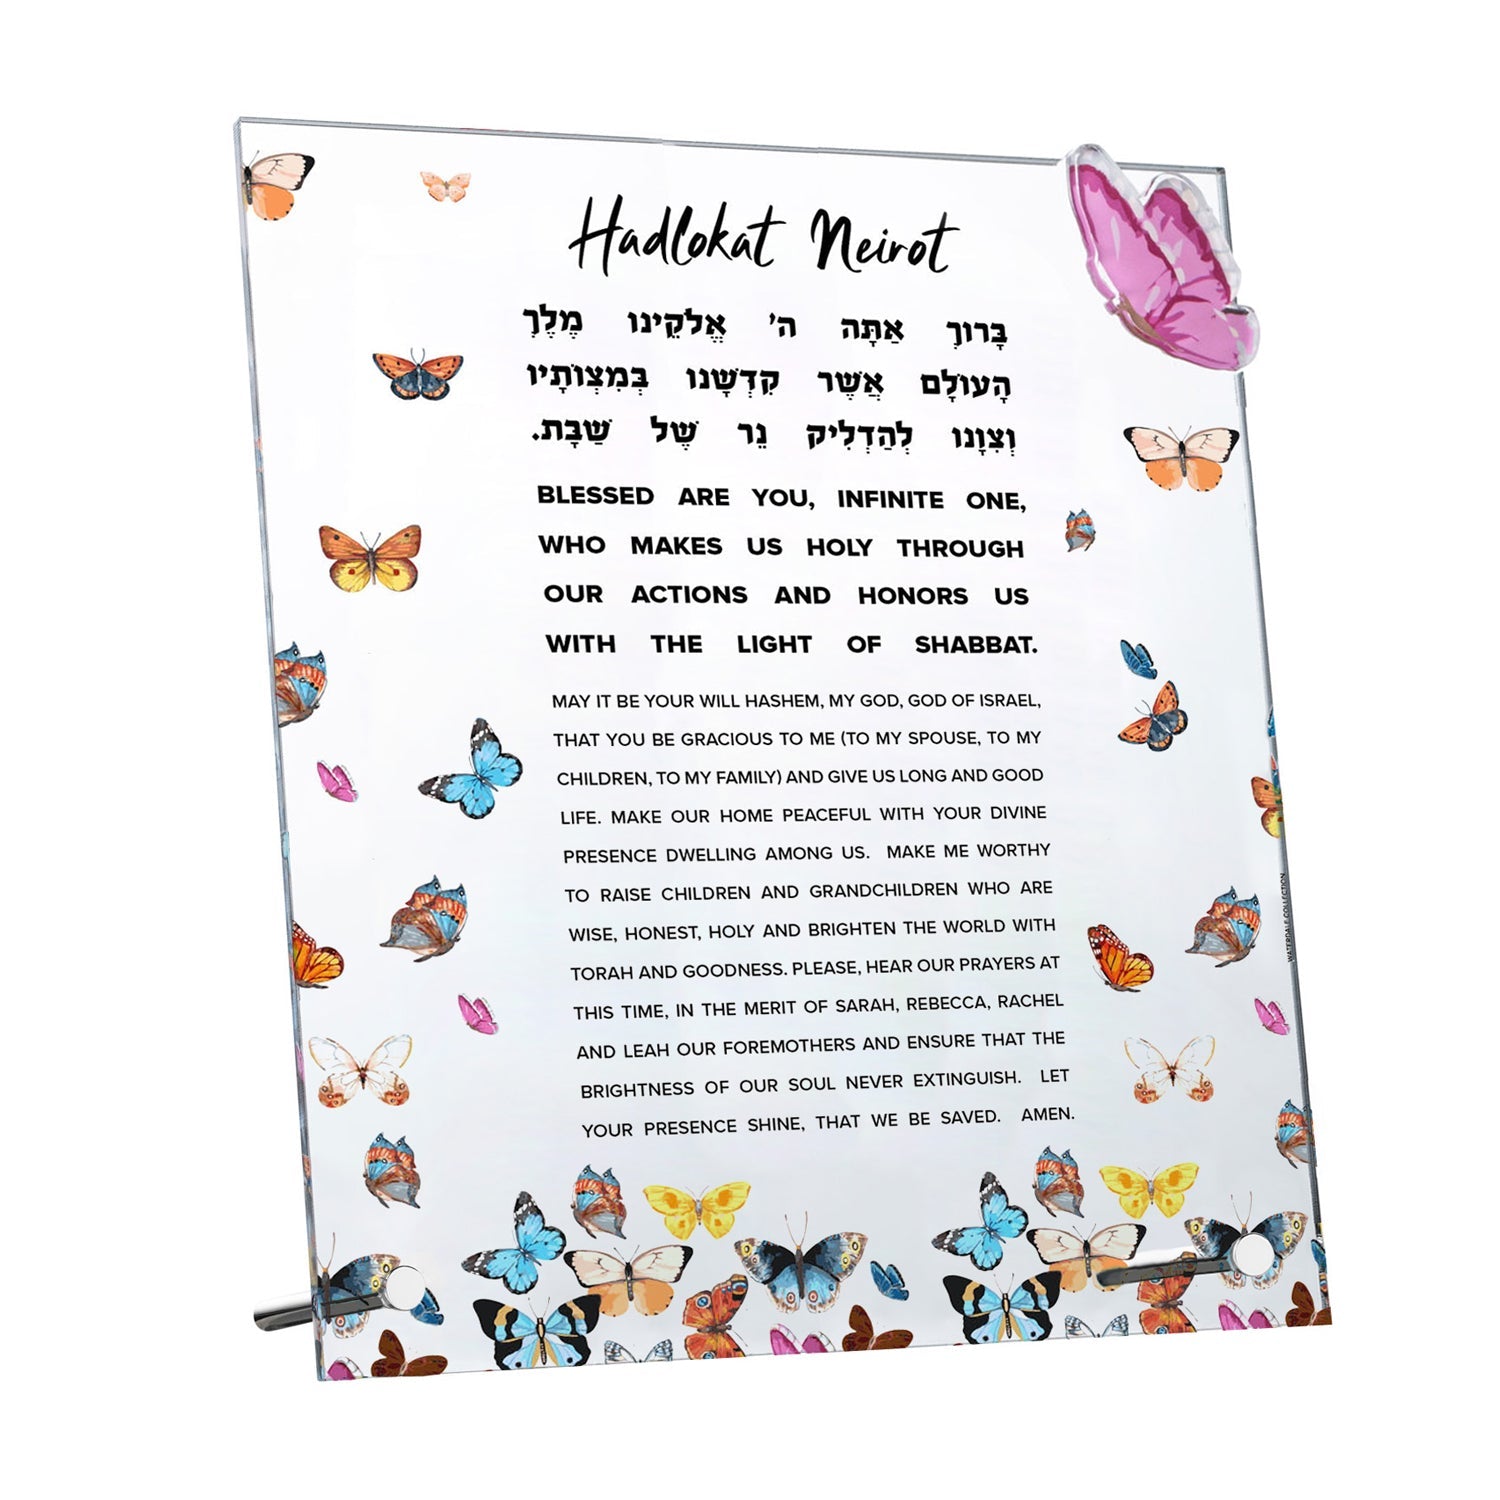 Hadlokat Neirot
בָּרוּךְ אַתָּה ה' אֱלֹקֵינוּ מֶלֶךְ
הָעוֹלָם אֲשֶׁר קִדְּשָׁנוּ בְּמִצְוֹתָיו
וְצִוָּנוּ לְהַדְלִיק נֵר שֶׁל שַׁבָּת.
BLESSED ARE YOU, INFINITE ONE,
WHO MAKES US HOLY THROUGH
OUR ACTIONS AND HONORS US
WITH THE LIGHT OF SHABBAT.
MAY IT BE YOUR WILL HASHEM, MY GOD, GOD OF ISRAEL,
THAT YOU BE GRACIOUS TO ME (TO MY SPOUSE, TO MY
CHILDREN, TO MY FAMILY) AND GIVE US LONG AND GOOD
LIFE. MAKE OUR HOME PEACEFUL WITH YOUR DIVINE
PRESENCE DWELLING AMONG US. MAKE ME WORTHY
TO RAISE CHILDREN AND GRANDCHILDREN WHO ARE
WISE, HONEST, HOLY AND BRIGHTEN THE WORLD WITH
TORAH AND GOODNESS. PLEASE, HEAR OUR PRAYERS AT
THIS TIME, IN THE MERIT OF SARAH, REBECCA, RACHEL
AND LEAH OUR FOREMOTHERS AND ENSURE THAT THE
BRIGHTNESS OF OUR SOUL NEVER EXTINGUISH. LET
YOUR PRESENCE SHINE, THAT WE BE SAVED. AMEN.
WATERDALE COLLECTION